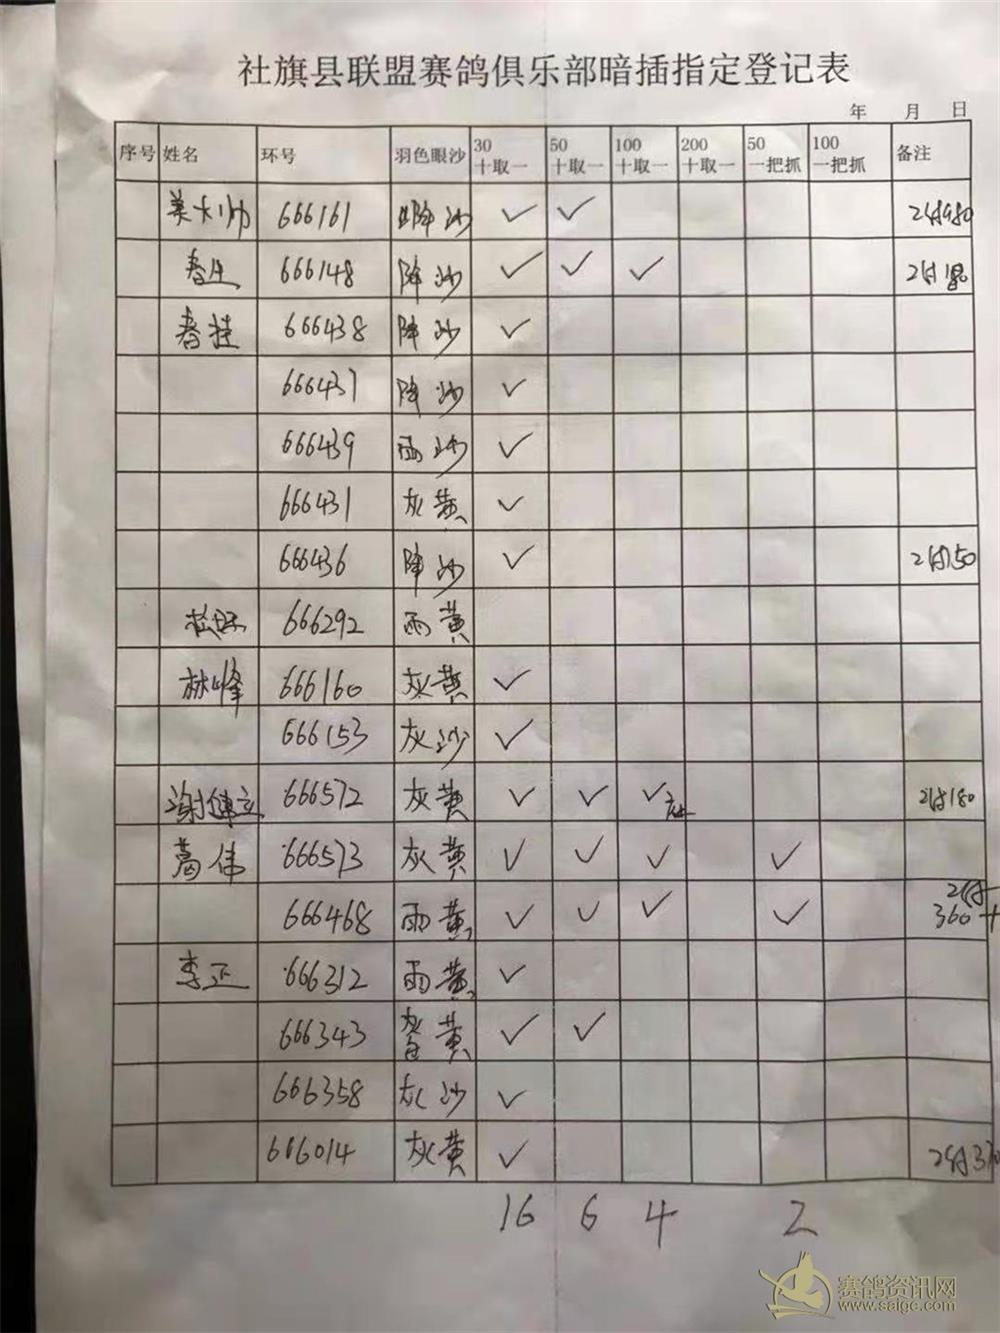 社旗县联盟赛鸽俱乐部暗插指定登记表
年 月 日
序号 姓名 环号 羽色眼沙 30 十取一 50 十取一 100 十取一 200 十取一 50 一把抓 100 一把抓 备注
666161 沙 ✓ ✓
春生 666148 降沙 ✓ ✓ ✓
春桂 666438 降沙 ✓
666437 降沙 ✓
666439 雨沙 ✓
666431 灰黄 ✓
666436 降沙 ✓ 已付150
666292 雨黄
林峰 666160 灰黄 ✓
666153 灰沙 ✓
谢建立 666572 灰黄 ✓ ✓ ✓ 已付180
葛伟 666573 灰黄 ✓ ✓ ✓ ✓
666468 雨黄 ✓ ✓ ✓ ✓ 已付 360+
李正 666312 雨黄 ✓
666343 黄 ✓ ✓
666358 灰沙 ✓
666014 灰黄 ✓
16 6 4 2
赛鸽资讯网
www.saigc.com